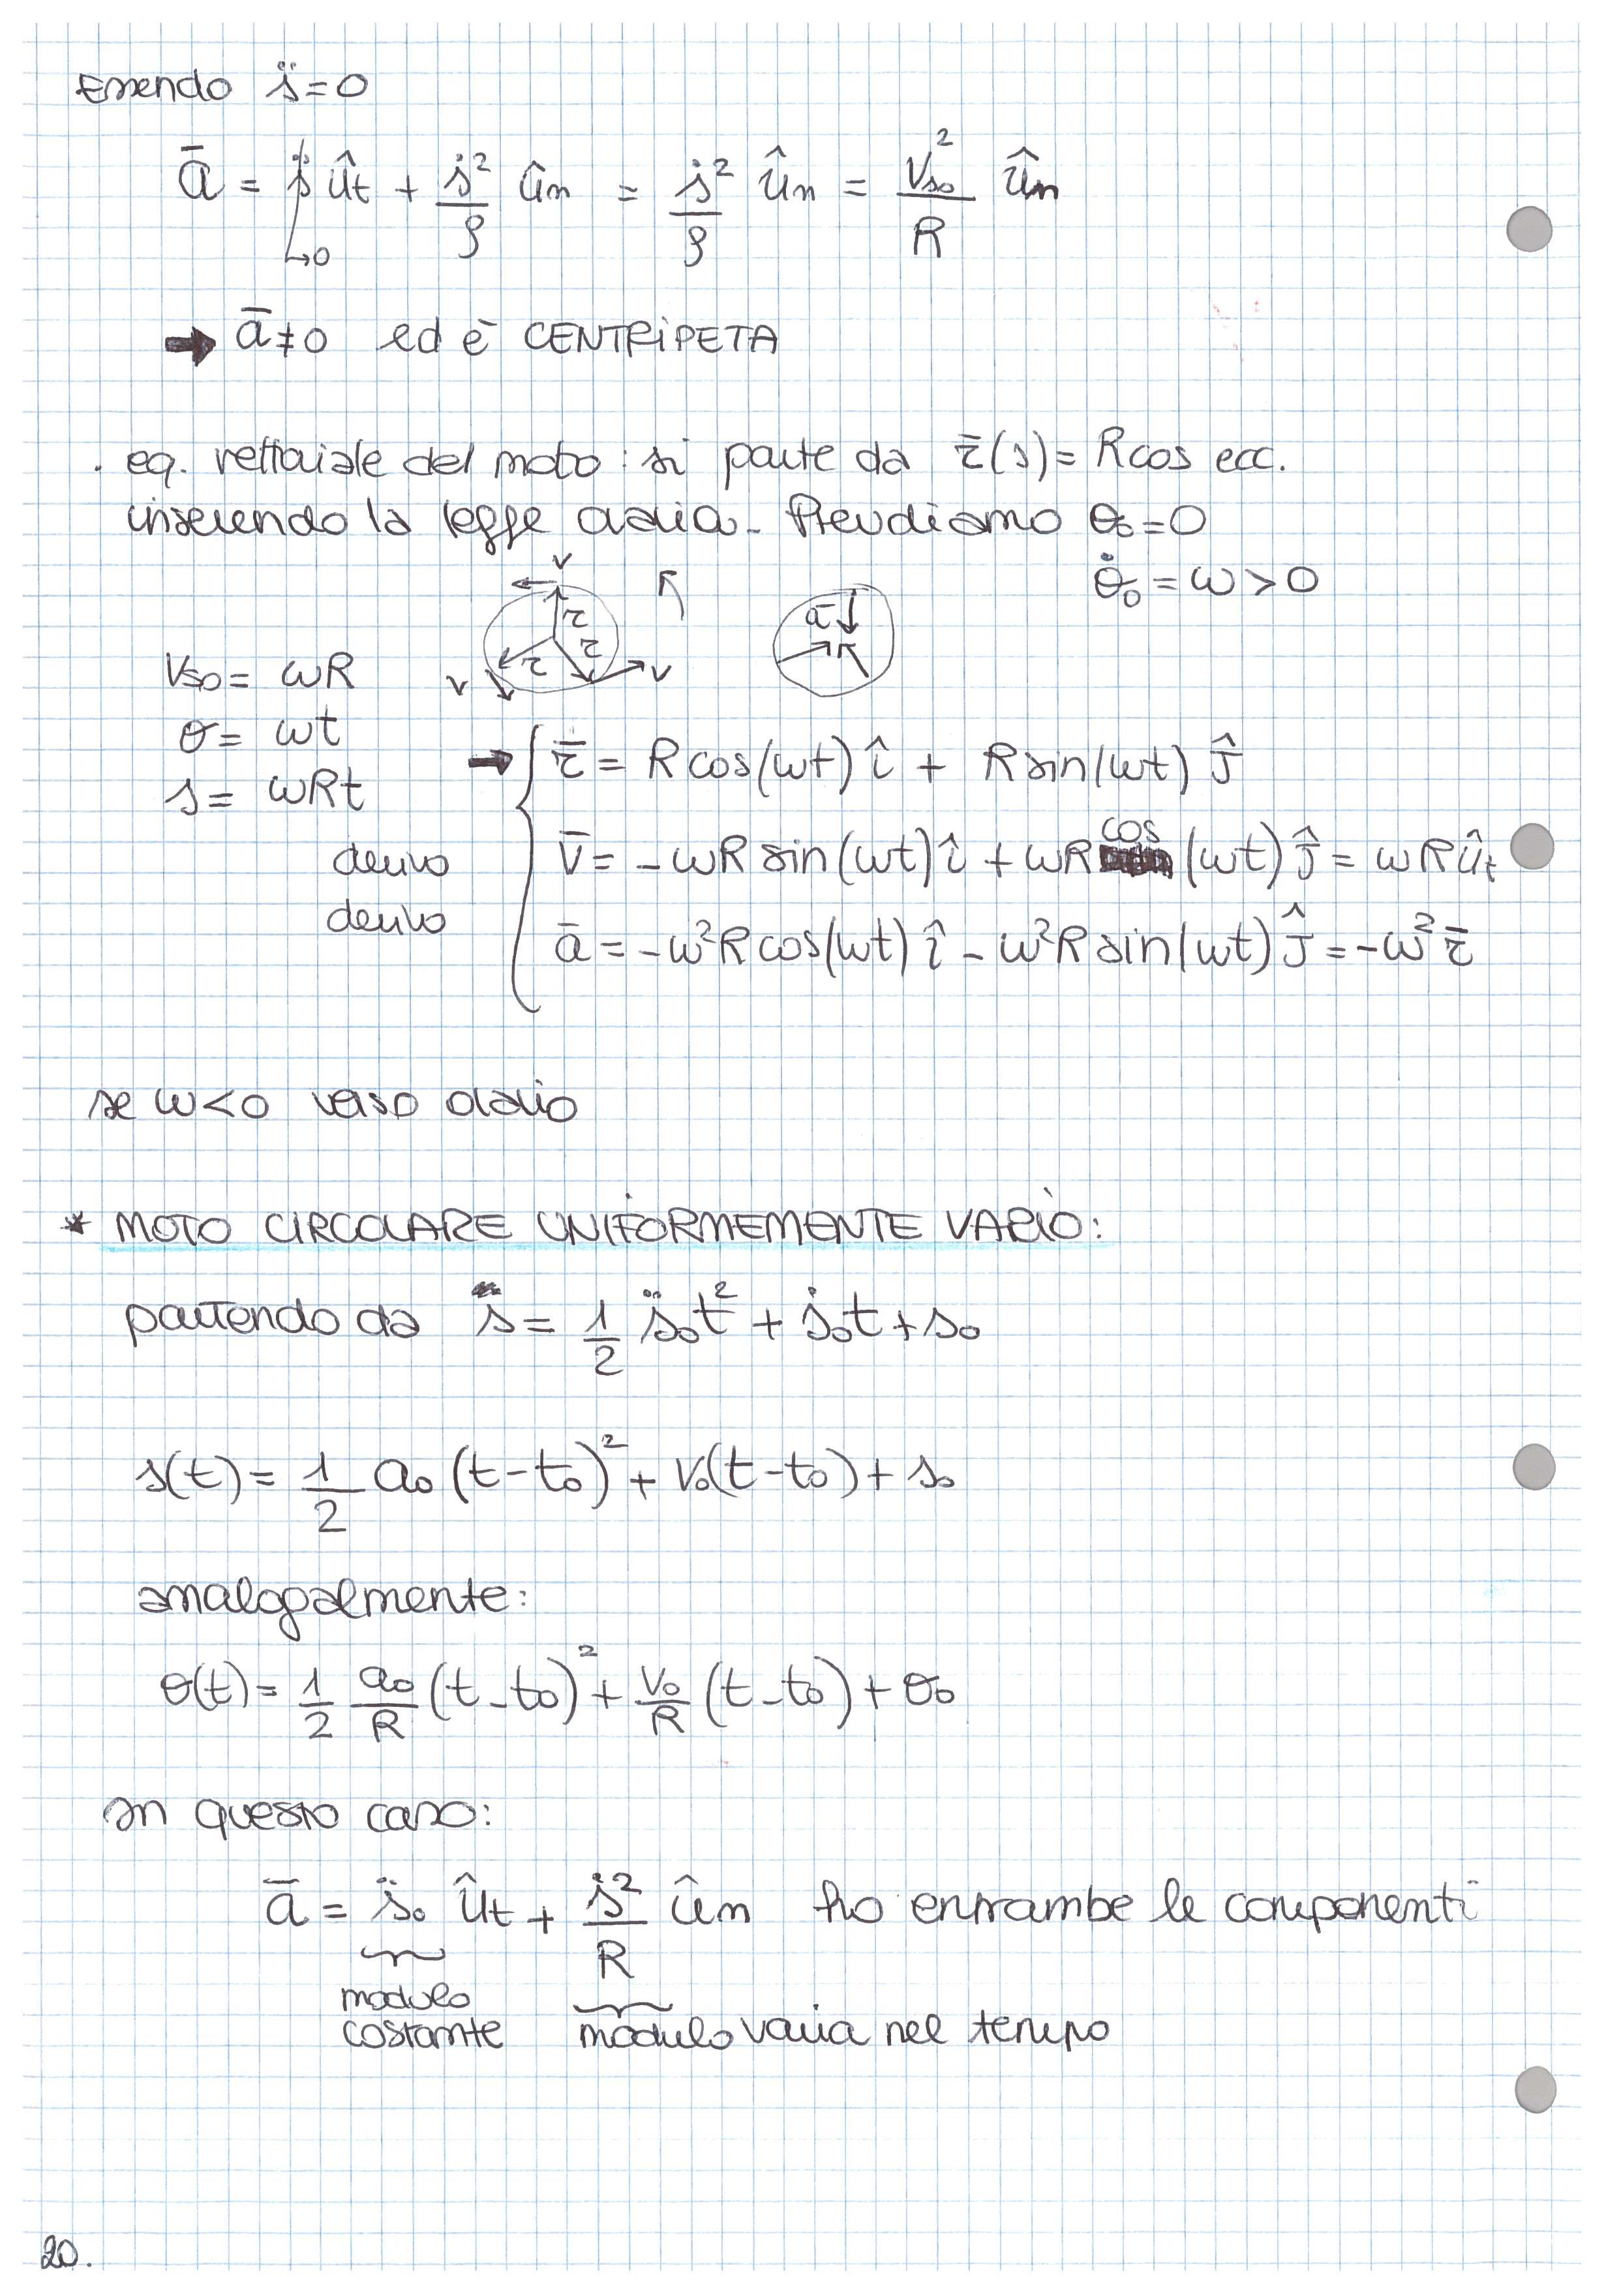 Essendo s̈=0
ā = s̈ ût + ṡ²/ρ ûn = ṡ²/ρ ûn = Vso²/R ûn
↳0
➡ ā≠0 ed è CENTRIPETA
. eq. vettoriale del moto: si parte da r̄(s)= Rcos ecc.
inserendo la legge oraria. Prendiamo θ₀=0
θ̇₀ = ω > 0
v
r r r
v v
ā
Vso= ωR
θ= ωt
s= ωRt
➡ { r̄ = R cos(ωt) î + R sin(ωt) ĵ
derivo v̄ = -ωR sin(ωt) î + ωR cos (ωt) ĵ = ωR ût
derivo ā = -ω²R cos(ωt) î - ω²R sin(ωt) ĵ = -ω² r̄
se ω<0 verso orario
* MOTO CIRCOLARE UNIFORMEMENTE VARIO:
partendo da s = 1/2 s̈₀t² + ṡ₀t + s₀
s(t) = 1/2 a₀ (t-t₀)² + v₀(t-t₀) + s₀
analogalmente:
θ(t) = 1/2 a₀/R (t-t₀)² + v₀/R (t-t₀) + θ₀
In questo caso:
ā = s̈₀ ût + ṡ²/R ûn ho entrambe le componenti
modulo
costante modulo varia nel tempo
20.